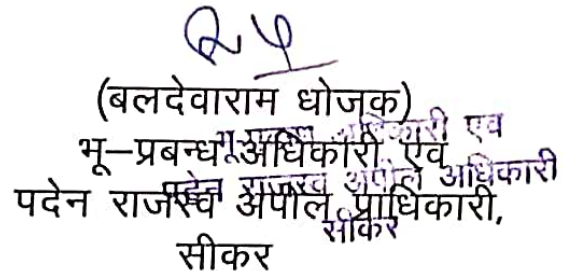 (बलदेवाराम धोजक)
भू–प्रबन्ध अधिकारी एवं
पदेन राजस्व अपील प्राधिकारी,
सीकर
अधिकारी एव
राजस्व अपील अधिकारी
सीकर